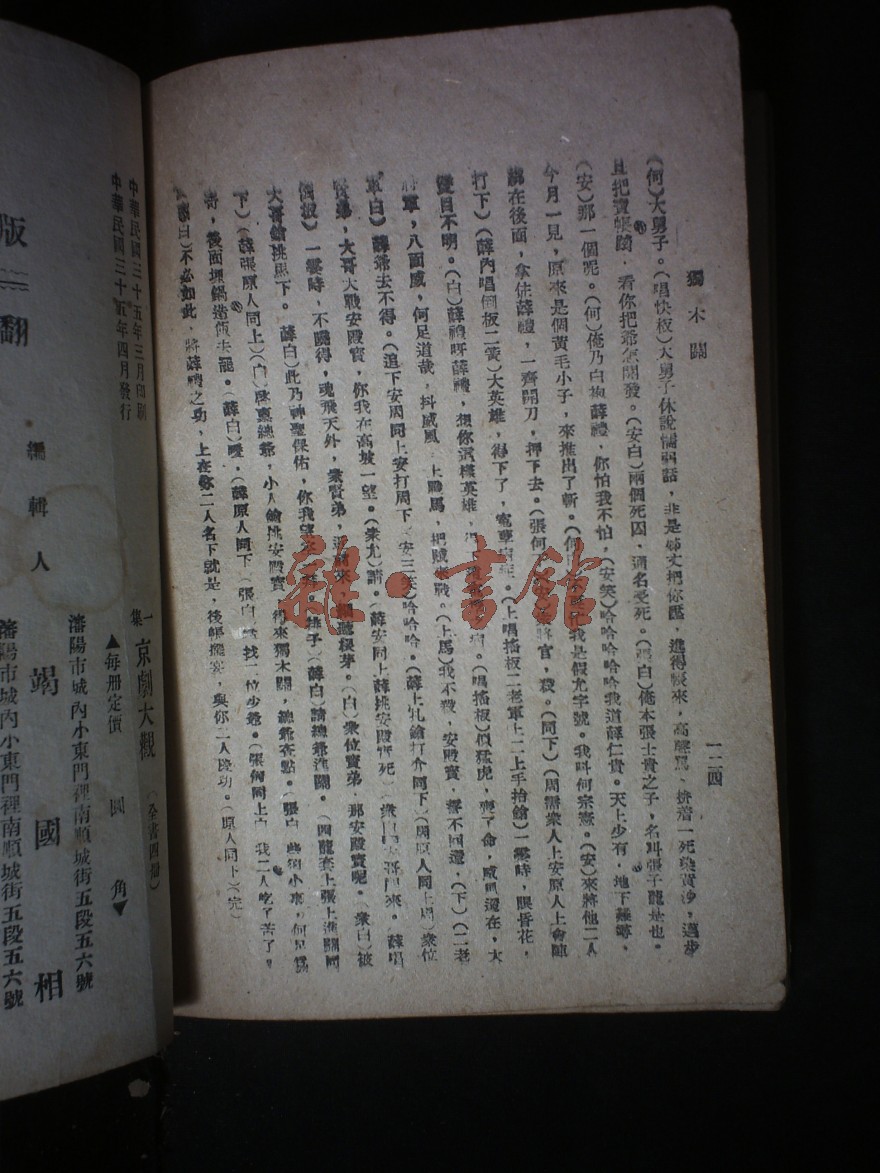 獨木關
一二四
(何)大舅子。(唱快板)大舅子休說懦弱話，非是姊丈把你壓，進得帳來，高聲罵，拚着一死染黃沙，邁步
且把寶帳踏，看你把爺怎開發。(安白)兩個死囚，通名受死。(張白)俺本張士貴之子，名叫張子龍是也。
(安)那一個呢。(何)俺乃白袍薛禮，你怕我不怕，(安笑)哈哈哈哈哈我道薛仁貴。天上少有，地下難尋，
今月一見，原來是個黃毛小子，來推出了斬。我是假尤字號。我叫何宗憲。(安)來將他二人
綁在後面，拿住薛禮，一齊開刀，押下去。(張何 官，殺。(同下)(周需衆人上安原人上會陣
打下)(薛內唱倒板二黃)大英雄，得下了，(上唱搖板二老軍上二上手抬鎗)一霎時，眼昏花，
雙目不明。(白)薛禮呀薛禮，想你這樣英雄，(唱搖板)似猛虎，喪了命，威風還在，大
將軍，八面威，何足道哉，抖威風，上戰馬，把賊來戰。(上馬)我不殺，安殿寶，誓不回還，(下)(二老
軍白)薛爺去不得。(追下安周同上安打周下安三笑)哈哈哈。(薛上扎鎗打介同下)(周原人同上周)衆位
賢弟，大哥大戰安殿寶，你我在高坡一望。(衆允)請。(薛安同上薛挑安殿寶死) 來。(薛唱
倒板)一霎時，不曉得，魂飛天外，衆賢弟，(白)衆位賢弟，那安殿寶呢。(衆白)被
大哥鎗挑馬下。(薛白)此乃神聖保佑，你我 (薛白)請總爺進關。(四龍套上張上進關同
下)(薛張原人同上)(白)啟稟總爺，小人鎗挑安殿寶，得來獨木關，總爺查點。(張白 些須小事，何足爲
奇，後面埋鍋造飯去罷。(薛白)噯。(薛原人同下)(張白 找一位少爺。(張何同上白 我二人吃了苦了。
白)不必如此，將薛禮之功，上在你二人名下就是，後帳擺宴，與你二人慶功。(原人同下)(完)
中華民國三十五年三月印刷
中華民國三十五年四月發行
一集 京劇大觀 (全書四冊)
▲每册定價 圓 角▼
版 翻
編輯人 竭國相
瀋陽市城內小東門裡南順城街五段五六號
瀋陽市城內小東門裡南順城街五段五六號
雜·書館